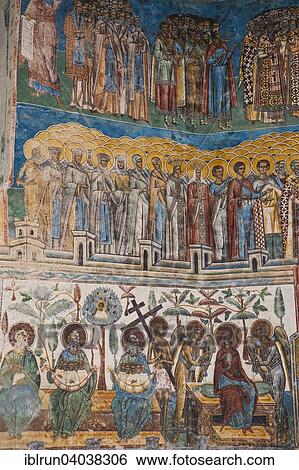 iblrun04038306 www.fotosearch.com